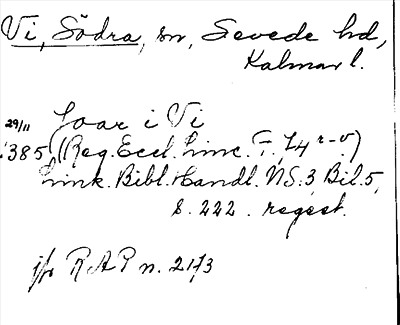 Vi, Södra, sn, Sevede hd,
Kalmar l.
29/11 Joar i Vi
1385 (Reg. Eccl. Linc. F. 74 r-v)
Link. Bibl. Handl. NS. 3, Bil. 5,
s. 222. regest.
jfr RAP n. 2173